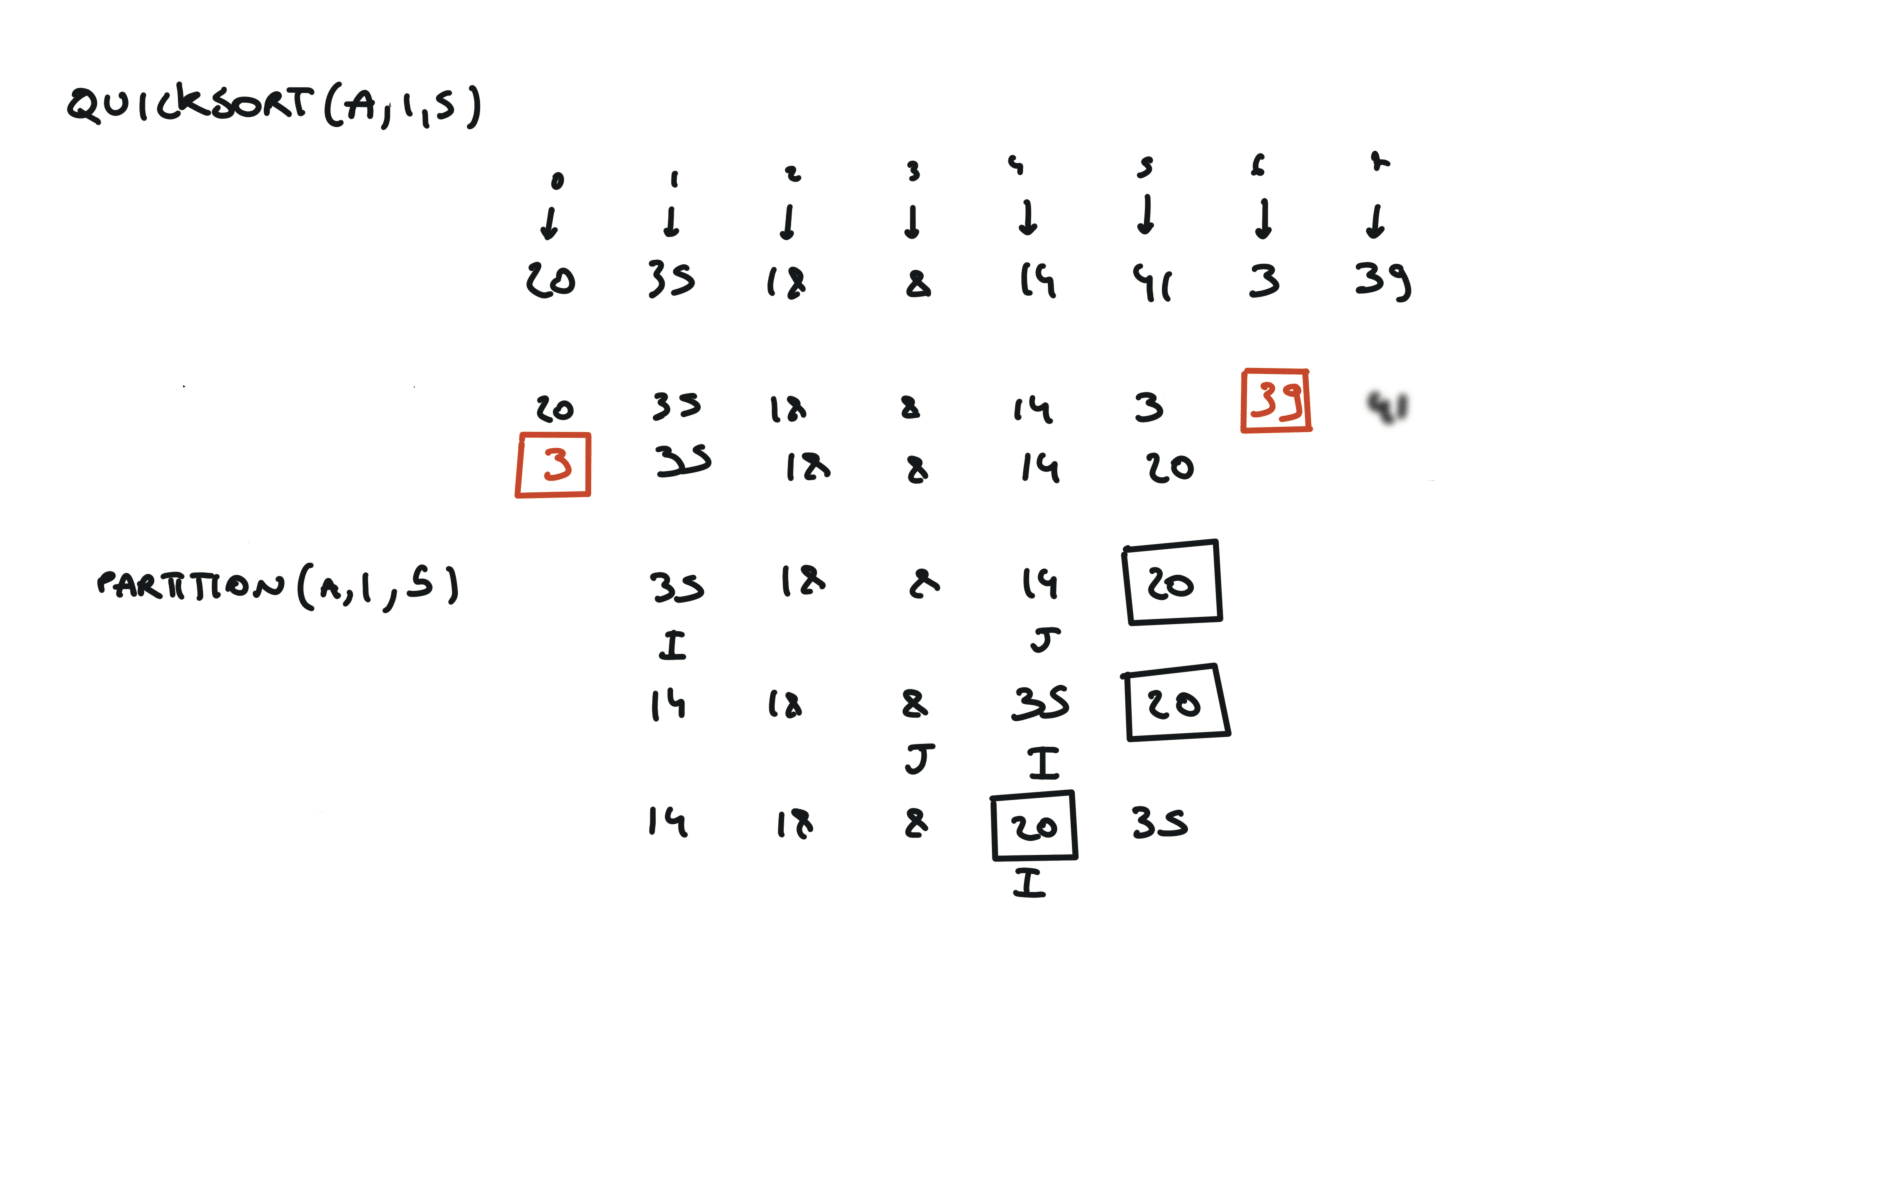 QUICKSORT(A,1,5)
0 1 2 3 4 5 6 7
20 35 18 8 14 41 3 39
20 35 18 8 14 3 39 41
3 35 18 8 14 20
PARTITION(A,1,5) 35 18 8 14 20
I J
14 18 8 35 20
J I
14 18 8 20 35
I